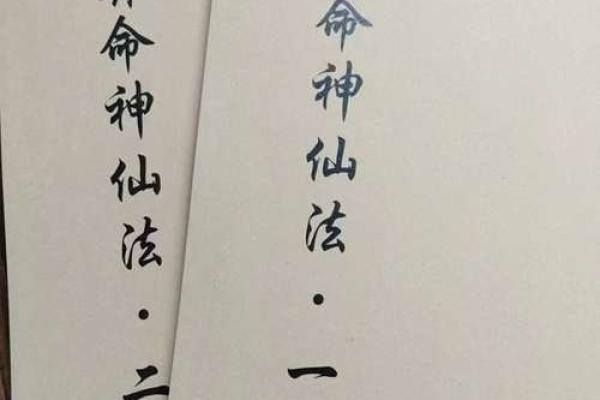 命神仙法·二
命神仙法·一